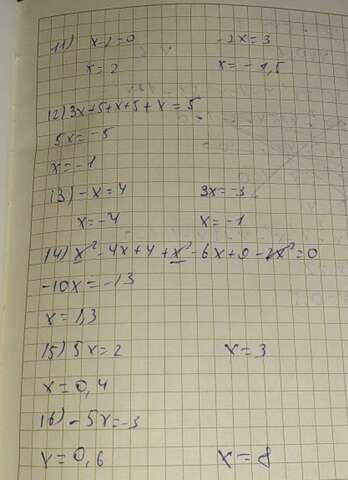 11) x-2=0 -2x=3
x=2 x=-1,5
12) 3x+5+x+5+x=5
5x=-5
x=-1
13) -x=4 3x=-3
x=-4 x=-1
14) x²-4x+4+x²-6x+9-2x²=0
-10x=-13
x=1,3
15) 5x=2 x=3
x=0,4
16) -5x=-3
x=0,6 x=8